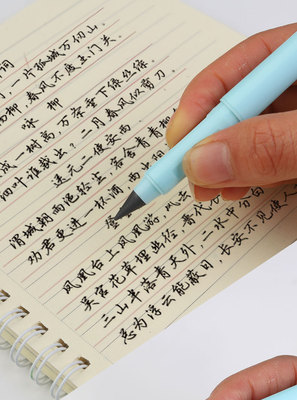 词
间，一片孤城万仞山。
柳，春风不度玉门关。
咏 柳
成一树高，万条垂下绿丝绦。
叶谁裁出？二月春风似剪刀。
送元二使安西
渭城朝雨浥轻尘，客舍青青柳
劝君更进一杯酒，西出阳
登
凤凰台上凤凰游，凤去
吴宫花草埋幽径，晋代衣
三山半落青天外，二水中分白
总为浮云能蔽日，长安不见使人